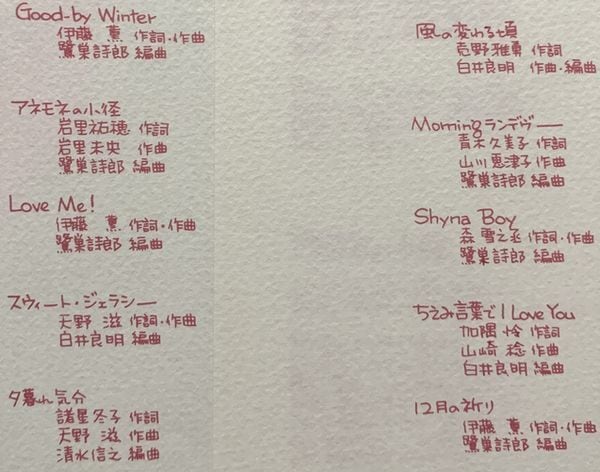 Good-by Winter
伊藤 薫 作詞・作曲
鷺巣詩郎 編曲
アネモネの小径
岩里祐穂 作詞
岩里未央 作曲
鷺巣詩郎 編曲
Love Me!
伊藤 薫 作詞・作曲
鷺巣詩郎 編曲
スウィート・ジェラシー
天野 滋 作詞・作曲
白井良明 編曲
夕暮れ気分
諸星冬子 作詞
天野 滋 作曲
清水信之 編曲
風の変わる頃
荒野雅勇 作詞
白井良明 作曲・編曲
Morningランデヴー
青木久美子 作詞
山川恵津子 作曲
鷺巣詩郎 編曲
Shyna Boy
森 雪之丞 作詞・作曲
鷺巣詩郎 編曲
ちえみ言葉で I Love You
加隅 怜 作詞
山崎 稔 作曲
白井良明 編曲
12月の祈り
伊藤 薫 作詞・作曲
鷺巣詩郎 編曲